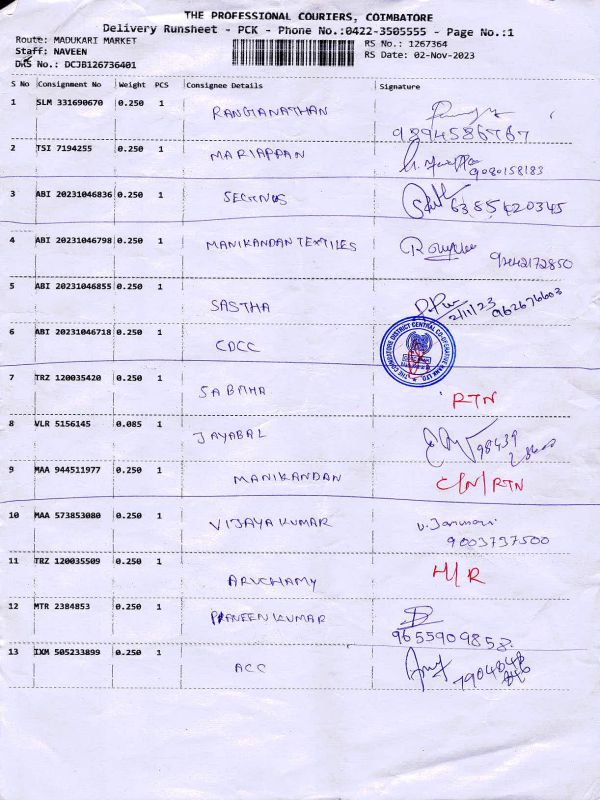 THE PROFESSIONAL COURIERS, COIMBATORE
Delivery Runsheet - PCK - Phone No.:0422-3505555 - Page No.:1
Route: MADUKARI MARKET
RS No.: 1267364
Staff: NAVEEN
RS Date: 02-Nov-2023
No.: DCJB126736401
S No Consignment No Weight PCS Consignee Details Signature
1 SLM 331690670 0.250 1 RANGANATHAN
9894586767
2 TSI 7194255 0.250 1 MARIAPPAN
9080158183
3 ABI 20231046836 0.250 1
4 ABI 20231046798 0.250 1 MANIKANDAN TEXTILES
9442172850
5 ABI 20231046855 0.250 1 SASTHA
2/11/23 962676603
6 ABI 20231046718 0.250 1 CDCC
THE COIMBATORE DISTRICT CENTRAL CO-OPERATIVE BANK LTD
7 TRZ 120035420 0.250 1 RTN
8 VLR 5156145 0.085 1 JAYABAL
98439
9 MAA 944511977 0.250 1 MANIKANDAN C/N/RTN
10 MAA 573853080 0.250 1 VIJAYA KUMAR
9003737500
11 TRZ 120035509 0.250 1 ARUCHAMY H/R
12 MTR 2384853 0.250 1 PRAVEEN KUMAR
9655909858
13 IXM 505233899 0.250 1 ACC
7904848